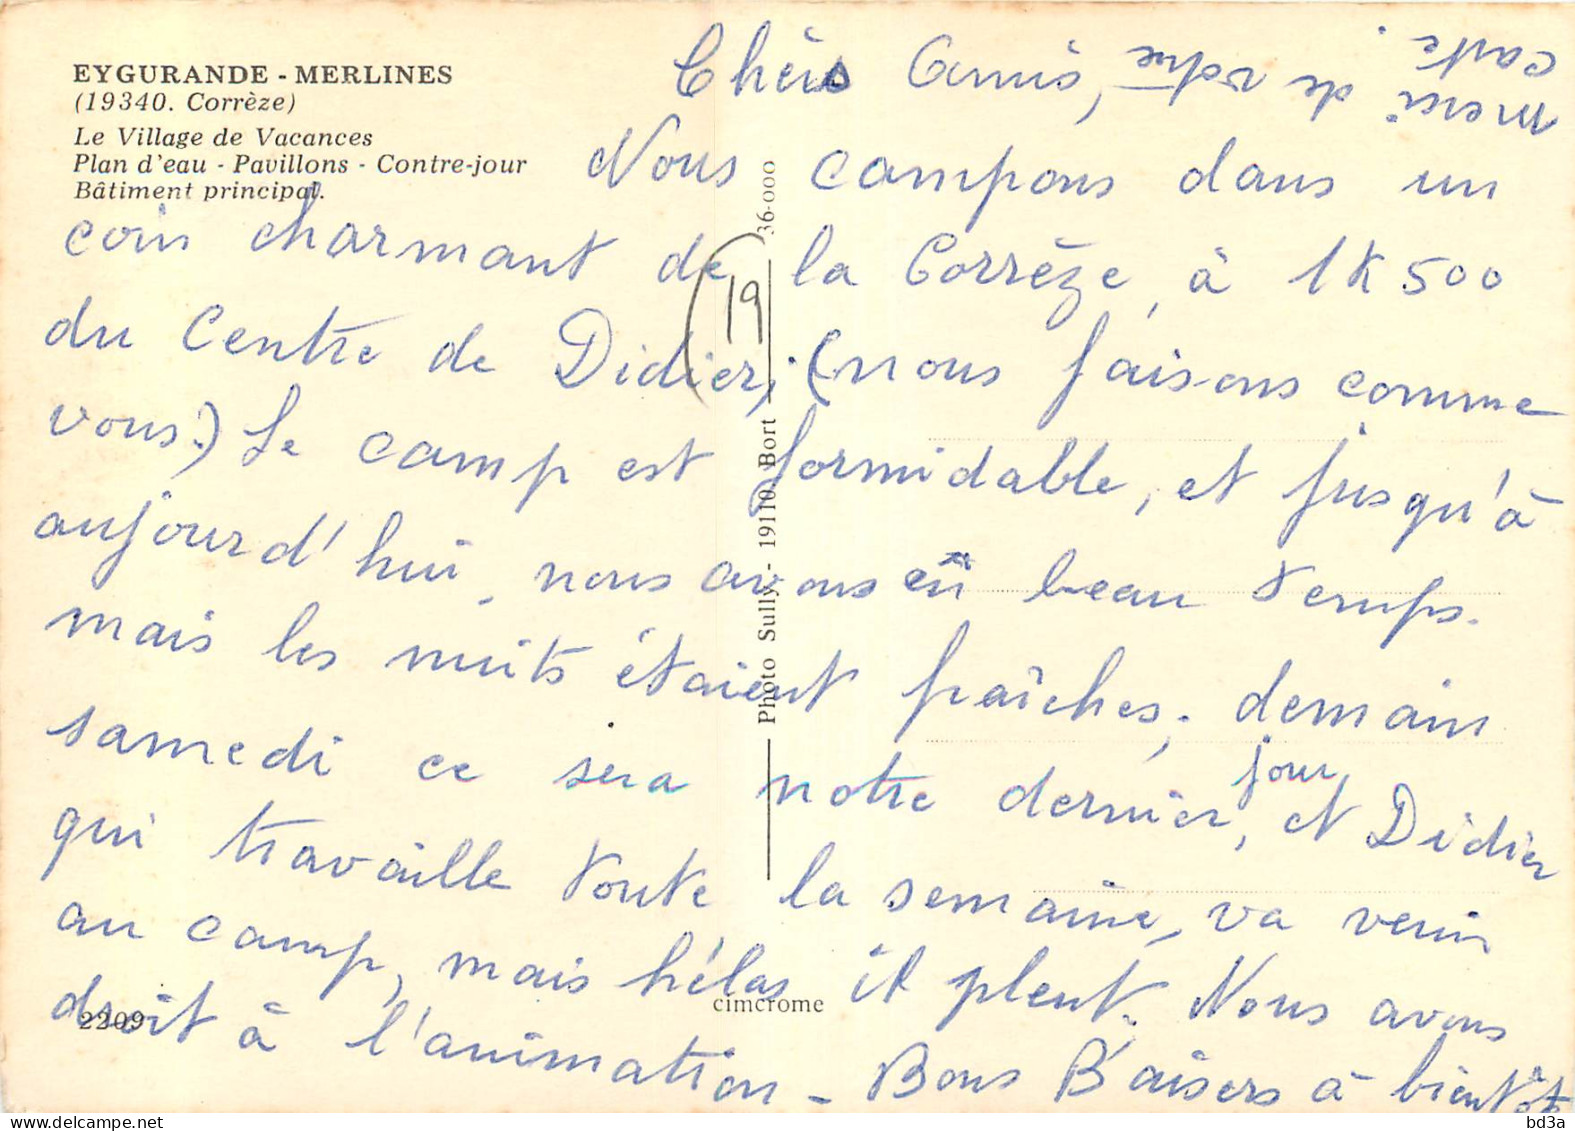 EYGURANDE - MERLINES
(19340. Corrèze)
Le Village de Vacances
Plan d'eau - Pavillons - Contre-jour
Bâtiment principal.
Chers Amis,
merci de votre
carte.
Nous campons dans un
coin charmant de la Corrèze, à 1K500
du Centre de Didier, (nous faisons comme
vous.) Le camp est formidable, et jusqu'à
aujourd'hui, nous avons eu beau temps.
mais les nuits étaient fraîches, demain
samedi ce sera notre dernier jour, et Didier
qui travaille toute la semaine, va venir
au camp, mais hélas il pleut. Nous avons
droit à l'animation - Bons Baisers à bientôt
(19
Photo Sully - 19110 Bort
36-000
cimcrome
2209
delcampe.net
bd3a